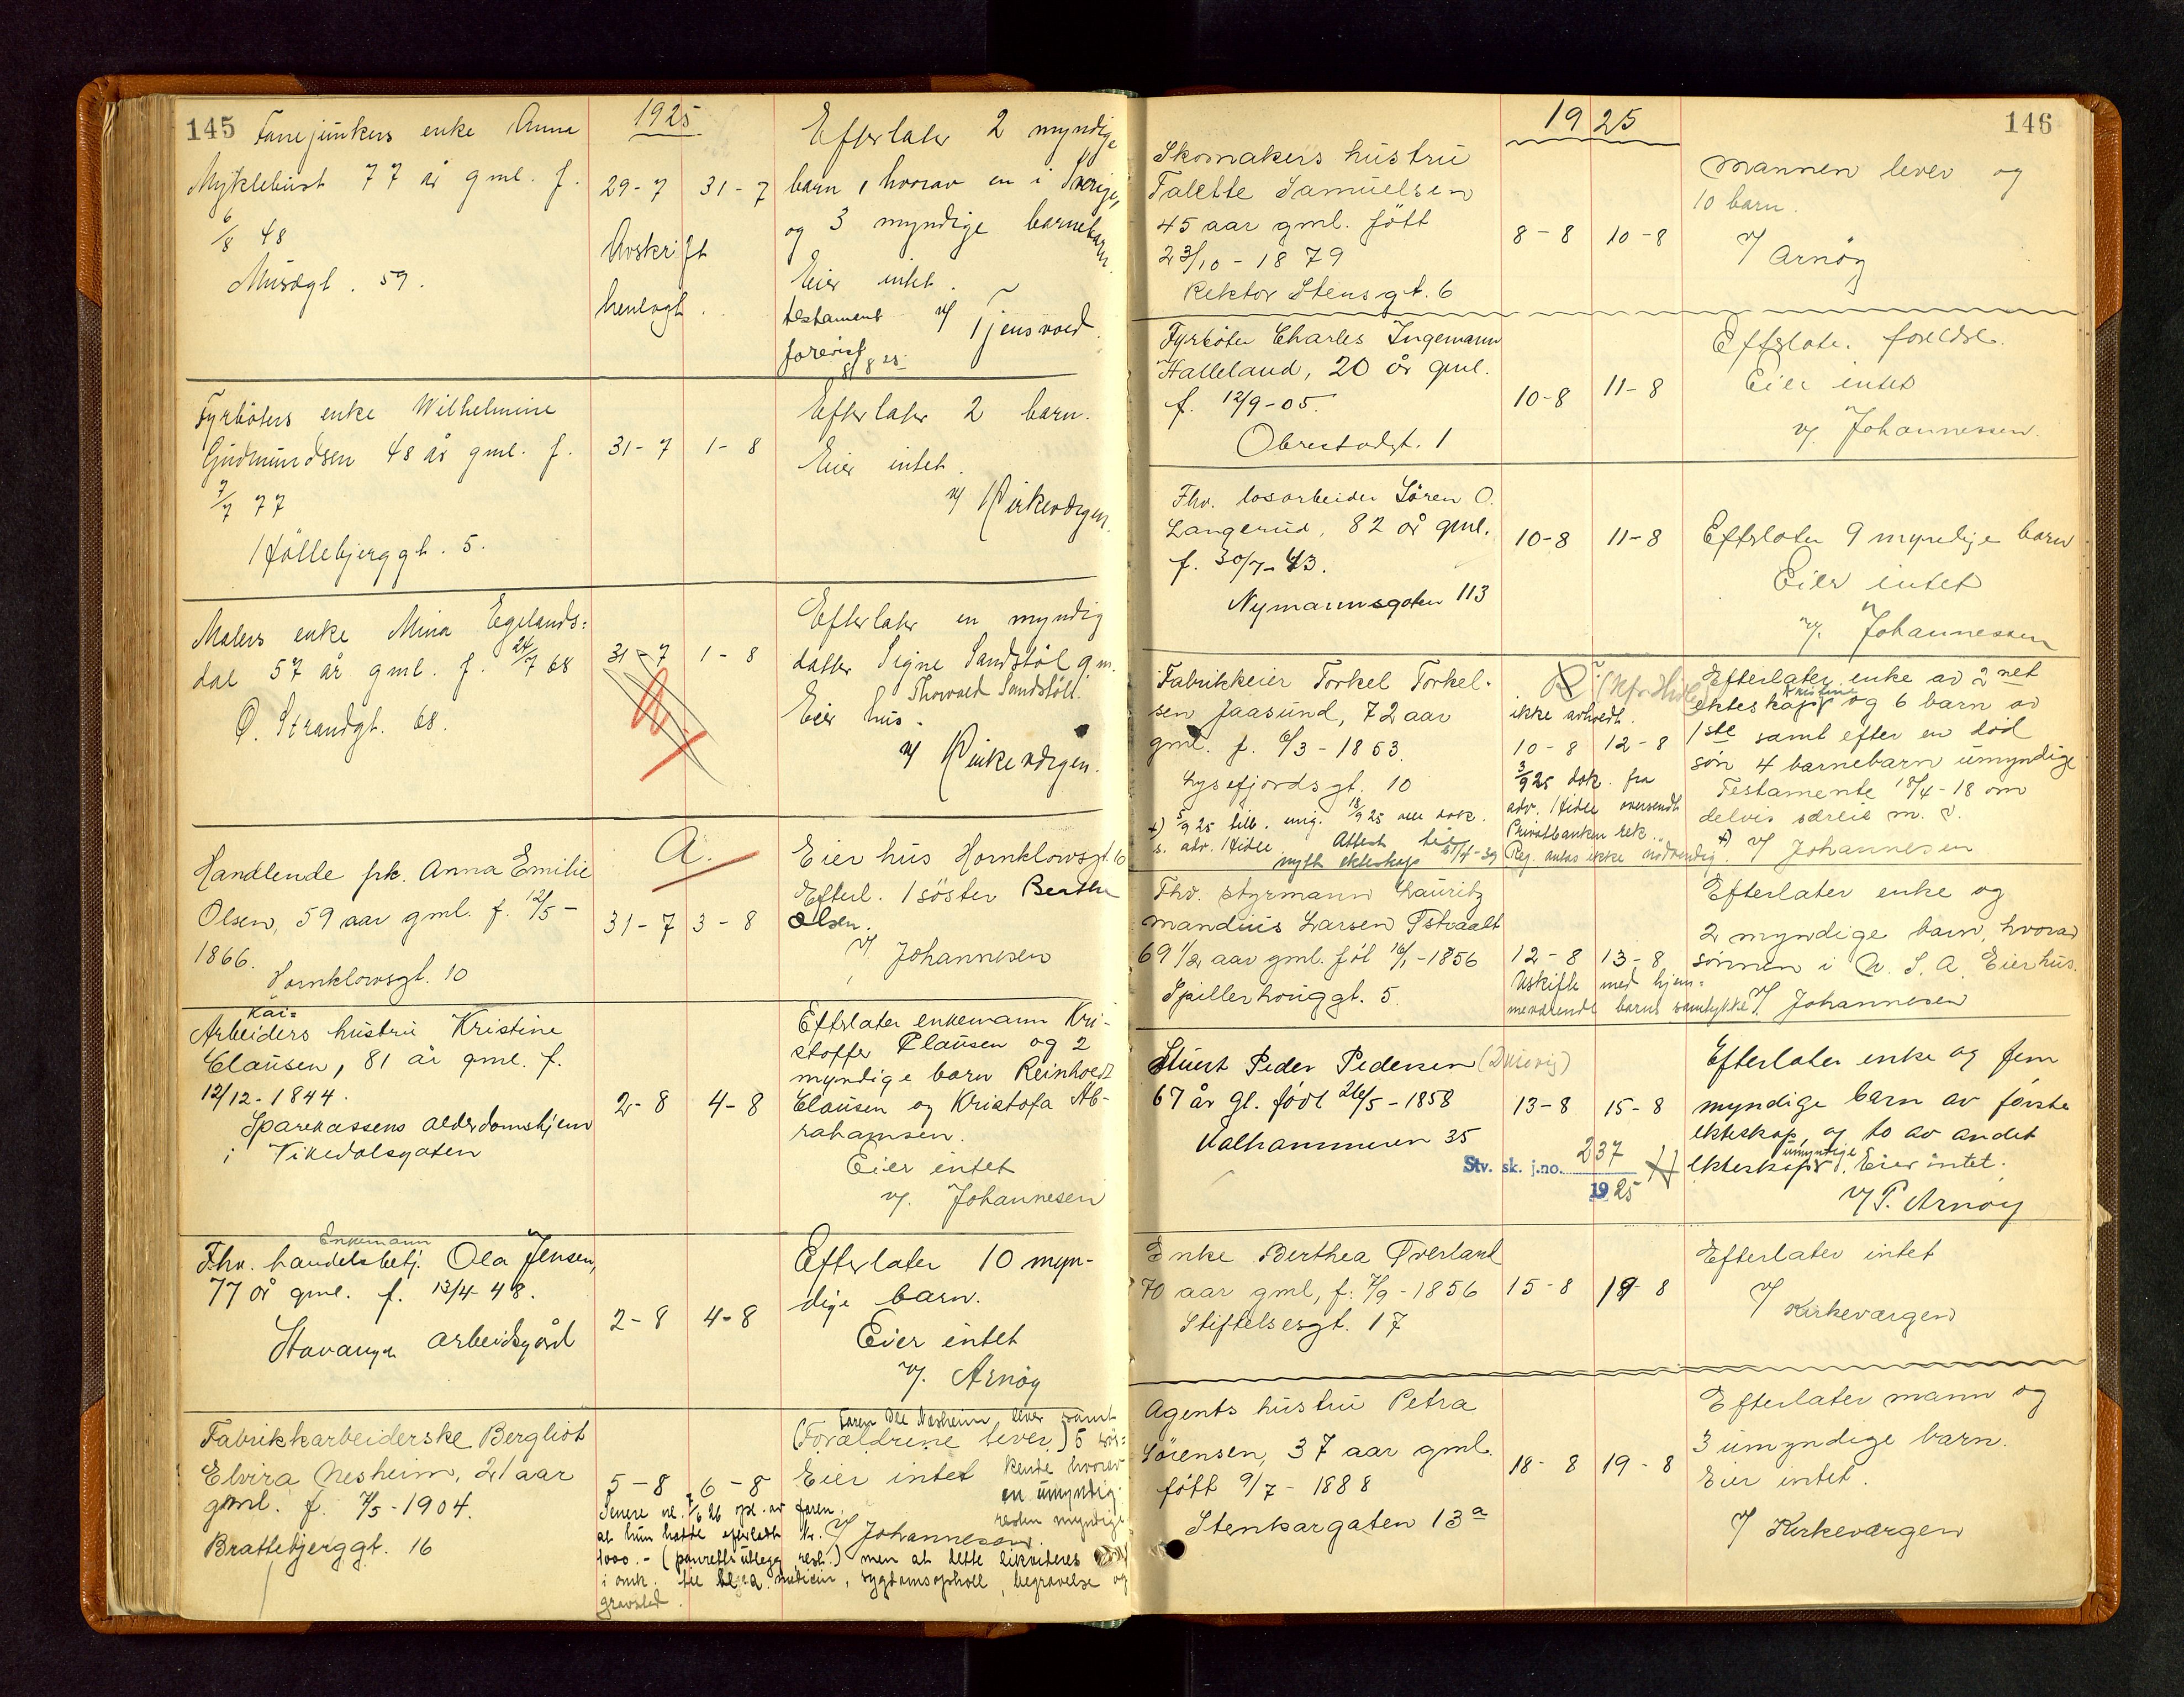 145
1925
Fanejunkers enke Anna
Myklebust 77 år gml. f.
6/8 48
Musegt. 59.
29-7 31-7
Avskrift
henlagt.
Efterlater 2 myndige
barn, hvorav en i Sverige,
og 3 myndige barnebarn.
Eier intet.
testament
forevist
8/8 25.
v/ Tjensvold.
Fyrbøters enke Wilhelmine
Gudmundsen 48 år gml. f.
7/7 77
Høllebjerggt. 5.
31-7 1-8
Efterlater 2 barn.
Eier intet.
v/ Kirkevergen.
Malers enke Mina Egelands=
dal 57 år gml. f. 24/7 68
Ø. Strandgt. 68.
31-7 1-8
Efterlater en myndig
datter Signe Sandstøl g.m.
Thorvald Sandstøl.
Eier hus.
v/ Kirkevergen.
Handlende frk. Anna Emilie
Olsen, 59 aar gml. f. 12/5-
1866.
Hornklowsgt. 10
A.
31-7 3-8
Eier hus Hornklowsgt. 10
Efterl. 1 søster Berthe
Olsen.
v/ Johannesen
Kai=
Arbeiders hustru Kristine
Clausen, 81 år gml. f.
12/12-1844.
Sparekassens alderdomshjem
i Vikedalsgaten
2-8 4-8
Efterlater enkemann Kri-
stoffer Clausen og 2
myndige barn Reinholdt
Clausen og Kristofa Ab-
rahamsen.
Eier intet
v/. Johannesen
Enkemann
Fhv. handelsbetj. Ola Jensen,
77 år gml. f. 13/4-48.
Stavanger arbeidsgård
2-8 4-8
Efterlater 10 myn-
dige barn.
Eier intet
v/. Arnøy
Fabrikkarbeiderske Bergliot
Elvira Nesheim, 21 aar
gml. f. 7/5-1904.
Brattebjerggt. 16
5-8 6-8
Faren Ole Nesheim lever samt
(Forældrene lever.) 5 søs=
kende hvorav
en umyndig.
resten myndige
Eier intet
v/ Johannesen.
at hun hadde efterladt kr.
1000.- ( ) men at dette likvideres
i omk. til læge, medicin, sygdomsophold, begravelse og
gravsted.
146
1925
Skomakers hustru
Talette Samuelsen
45 aar gml. født
23/10-1879
Rektor Stensgt. 6
8-8 10-8
Mannen lever og
10 barn.
v/ Arnøy
Fyrbøter Charles Ingemann
Halleland, 20 år gml.
f. 12/9-05.
Obrestadgt. 1
10-8 11-8
Efterlater foreldre.
Eier intet
v/. Johannessen.
Fhv. losarbeider Søren O.
Langerud, 82 år gml.
f. 30/7-43.
Nymannsgaten 113
10-8 11-8
Efterlater 9 myndige barn
Eier intet
v/. Johannessen
Fabrikkeier Torkel Torkel-
sen Jaasund, 72 aar
gml. f. 6/3-1853.
Lysefjordsgt. 10
ikke avholdt.
10-8 12-8
3/9 25 dok. fra
adv. Hidle oversendt
Privatbanken
Reg. antas ikke nødvendig.
Attest til
nytt ekteskap
Efterlater enke av 2net
Kristine
ekteskap og 6 barn av
1ste samt efter en død
søn 4 barnebarn umyndige
Testamente 18/4-18 om
delvis særeie m. v.
v/ Johannesen
Fhv. styrmann Lauritz
Mandius Larsen Tstraalt
69 1/2 aar gml. føt 16/1-1856
Spillerhouggt. 5.
12-8 13-8
Uskifte med hjem=
meværende barns samtykke
Efterlater enke og
2 myndige barn, hvorav
sønnen i U. S. A. Eier hus.
v/. Johannesen
Stuert Peder Pedersen
67 år gl. født 26/5-1858
Valhammeren 35
13-8 15-8
Stv. sk. j.no. 237
1925
Efterlater enke og fem
myndige barn av første
ekteskap, og to av andet
umyndige
ekteskap. Eier intet.
v/ P. Arnøy
Enke Berthea Overland
70 aar gml, f. 7/9-1856
Stiftelsesgt. 17
15-8 19-8
Efterlater intet
v/ Kirkevargen
Agents hustru Petra
Sørensen, 37 aar gml.
føtt 9/7-1888
Stenkargaten 13a
18-8 19-8
Efterlater mann og
3 umyndige barn.
Eier intet.
v/ Kirkevargen